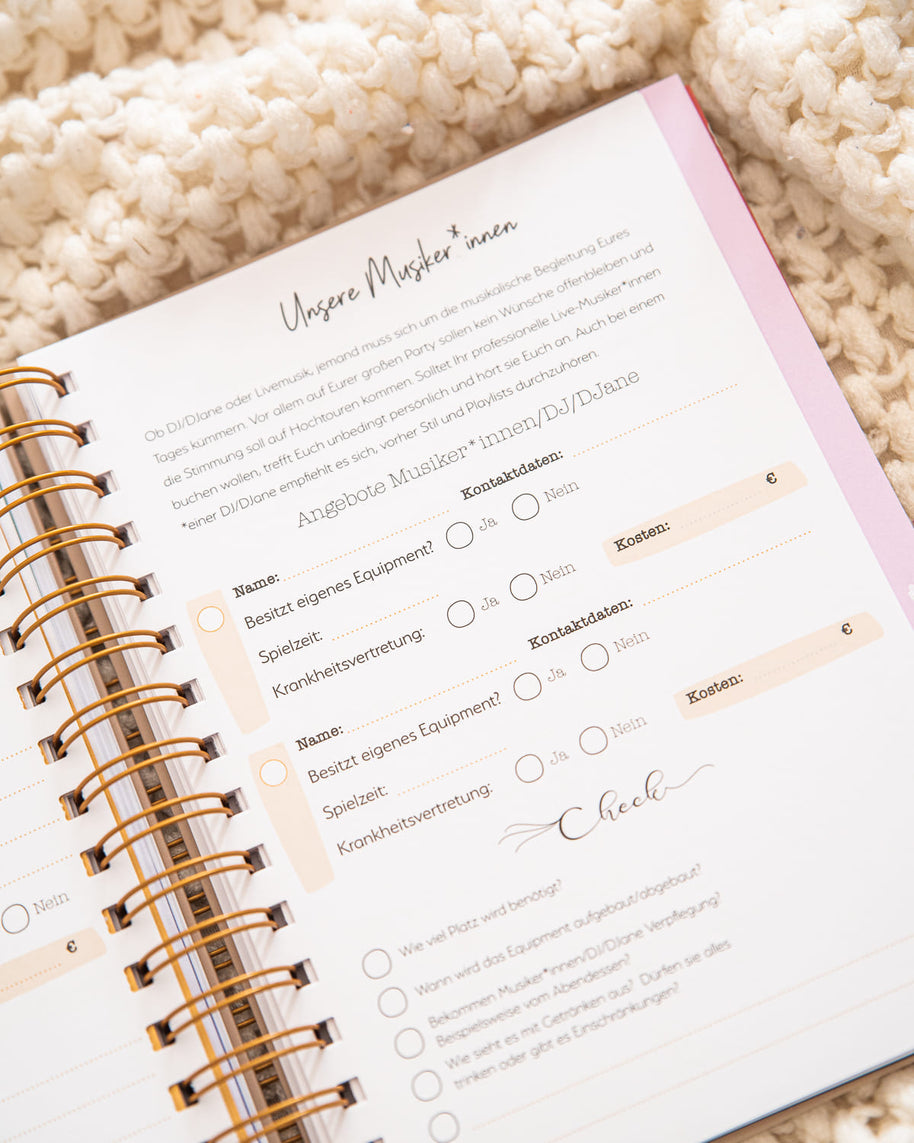 Unsere Musiker*innen
Ob DJ/DJane oder Livemusik, jemand muss sich um die musikalische Begleitung Eures
Tages kümmern. Vor allem auf Eurer großen Party sollen kein Wünsche offenbleiben und
die Stimmung soll auf Hochtouren kommen. Solltet Ihr professionelle Live-Musiker*innen
buchen wollen, trefft Euch unbedingt persönlich und hört sie Euch an. Auch bei einem
*einer DJ/DJane empfiehlt es sich, vorher Stil und Playlists durchzuhören.
Angebote Musiker*innen/DJ/DJane
Name: Kontaktdaten:
Besitzt eigenes Equipment? Ja Nein
Spielzeit: Kosten: €
Krankheitsvertretung: Ja Nein
Name: Kontaktdaten:
Besitzt eigenes Equipment? Ja Nein
Spielzeit: Kosten: €
Krankheitsvertretung: Ja Nein
Check
Wie viel Platz wird benötigt?
Wann wird das Equipment aufgebaut/abgebaut?
Bekommen Musiker*innen/DJ/DJane Verpflegung?
Beispielsweise vom Abendessen?
Wie sieht es mit Getränken aus? Dürfen sie alles
trinken oder gibt es Einschränkungen?
Nein
€